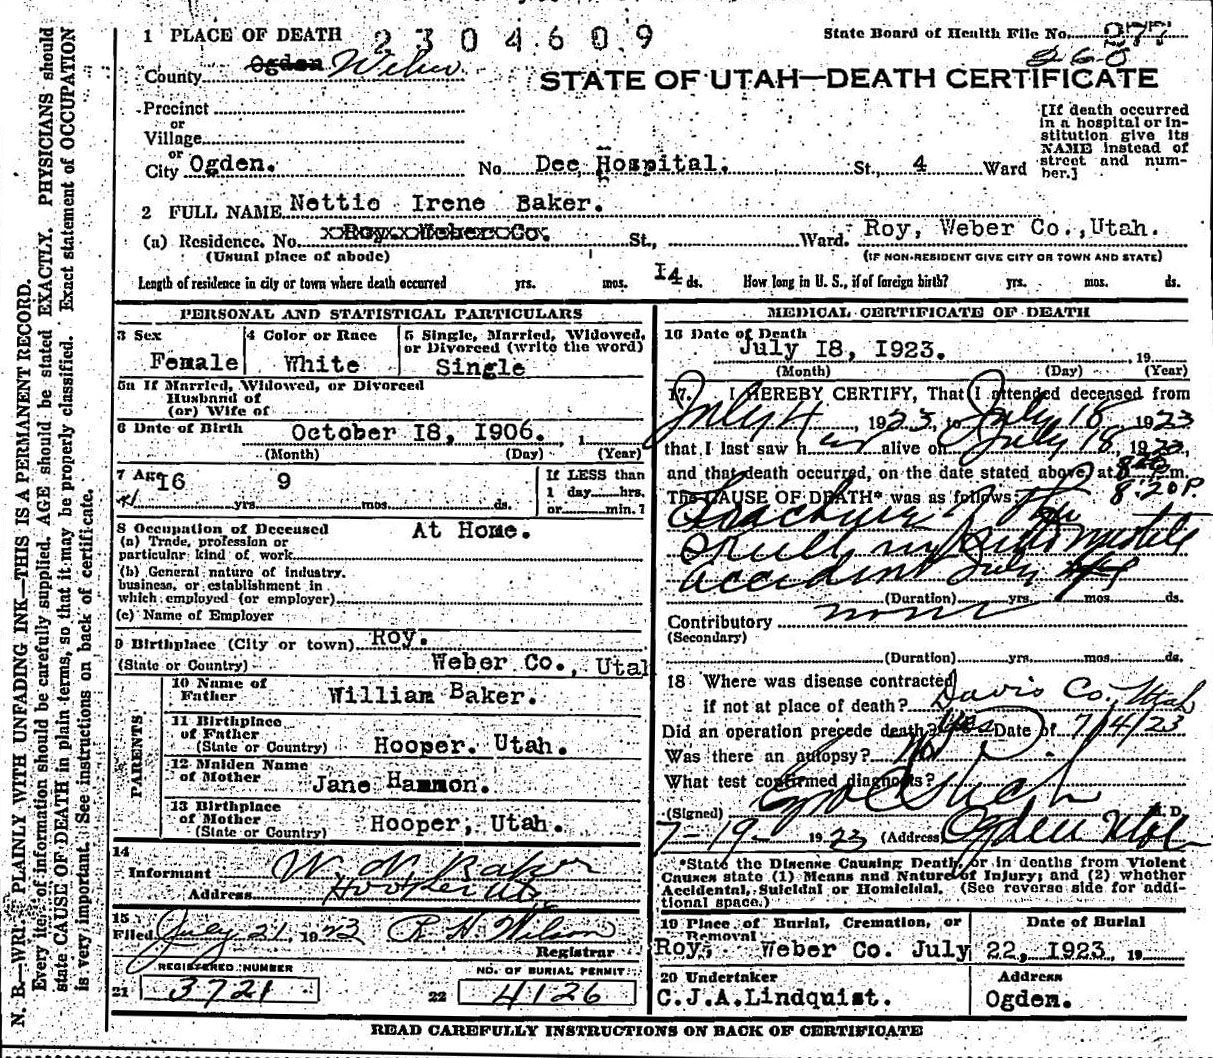 N. B.—WRITE PLAINLY WITH UNFADING INK—THIS IS A PERMANENT RECORD.
Every item of information should be carefully supplied. AGE should be stated EXACTLY. PHYSICIANS should
state CAUSE OF DEATH in plain terms, so that it may be properly classified. Exact statement of OCCUPATION
is very important. See instructions on back of certificate.
1 PLACE OF DEATH 2304609 State Board of Health File No. 277
260
County Ogden Weber
STATE OF UTAH—DEATH CERTIFICATE
Precinct
or
Village
or
City Ogden. No. Dee Hospital. St., 4 Ward
[If death occurred
in a hospital or in-
stitution give its
NAME instead of
street and num-
ber.]
2 FULL NAME Nettie Irene Baker.
(a) Residence. No. Roy Weber Co. St., Ward. Roy, Weber Co.,Utah.
(Usual place of abode) (IF NON-RESIDENT GIVE CITY OR TOWN AND STATE)
Length of residence in city or town where death occurred yrs. mos. 14 ds. How long in U. S., if of foreign birth? yrs. mos. ds.
PERSONAL AND STATISTICAL PARTICULARS
3 Sex 4 Color or Race 5 Single, Married, Widowed,
or Divorced (write the word)
Female White Single
5a If Married, Widowed, or Divorced
Husband of
(or) Wife of
6 Date of Birth October 18, 1906. , 1
(Month) (Day) (Year)
7 Age 16 9 If LESS than
1 day hrs.
yrs. mos. ds. or min.?
8 Occupation of Deceased At Home.
(a) Trade, profession or
particular kind of work
(b) General nature of industry,
business, or establishment in
which employed (or employer)
(c) Name of Employer
9 Birthplace (City or town) Roy.
(State or Country) Weber Co., Utah
PARENTS
10 Name of
Father William Baker.
11 Birthplace
of Father
(State or Country) Hooper. Utah.
12 Maiden Name
of Mother Jane Hammon.
13 Birthplace
of Mother
(State or Country) Hooper, Utah.
14
Informant W. N. Baker
Address Hooper Ut
15
Filed July 21, 1923 R H Wilson
Registrar
REGISTERED NUMBER NO. OF BURIAL PERMIT
21 3721 22 4126
MEDICAL CERTIFICATE OF DEATH
16 Date of Death
July 18, 1923. , 19
(Month) (Day) (Year)
17. I HEREBY CERTIFY, That I attended deceased from
July 4, 1923, to July 18 1923
that I last saw her alive on July 18, 1923,
and that death occurred, on the date stated above, at 8 20 P.m.
8:20 P.
The CAUSE OF DEATH* was as follows:
Fracture of the
skull, in automobile
accident July 4
(Duration) yrs. mos. ds.
Contributory none
(Secondary)
(Duration) yrs. mos. ds.
18 Where was disease contracted
if not at place of death? Davis Co, Utah
Did an operation precede death? Yes Date of 7/14/23
Was there an autopsy? No
What test confirmed diagnosis?
(Signed) M. D.
7-19- 1923 (Address) Ogden Utah
*State the Disease Causing Death, or in deaths from Violent
Causes state (1) Means and Nature of Injury; and (2) whether
Accidental, Suicidal or Homicidal. (See reverse side for addi-
tional space.)
19 Place of Burial, Cremation, or
Removal Date of Burial
Roy, Weber Co. July 22, 1923, 19
20 Undertaker Address
C.J.A.Lindquist. Ogden.
READ CAREFULLY INSTRUCTIONS ON BACK OF CERTIFICATE